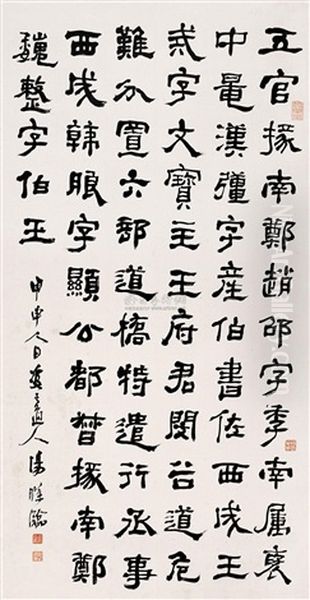 五官掾南鄭趙邵字季南屬襃
中鼂漢彊字産伯書佐西成王
戒字文寶主王府君閔谷道危
難分置六部道橋特遣行丞事
西成韓朖字顯公都督掾南鄭
魏整字伯玉
甲申人日